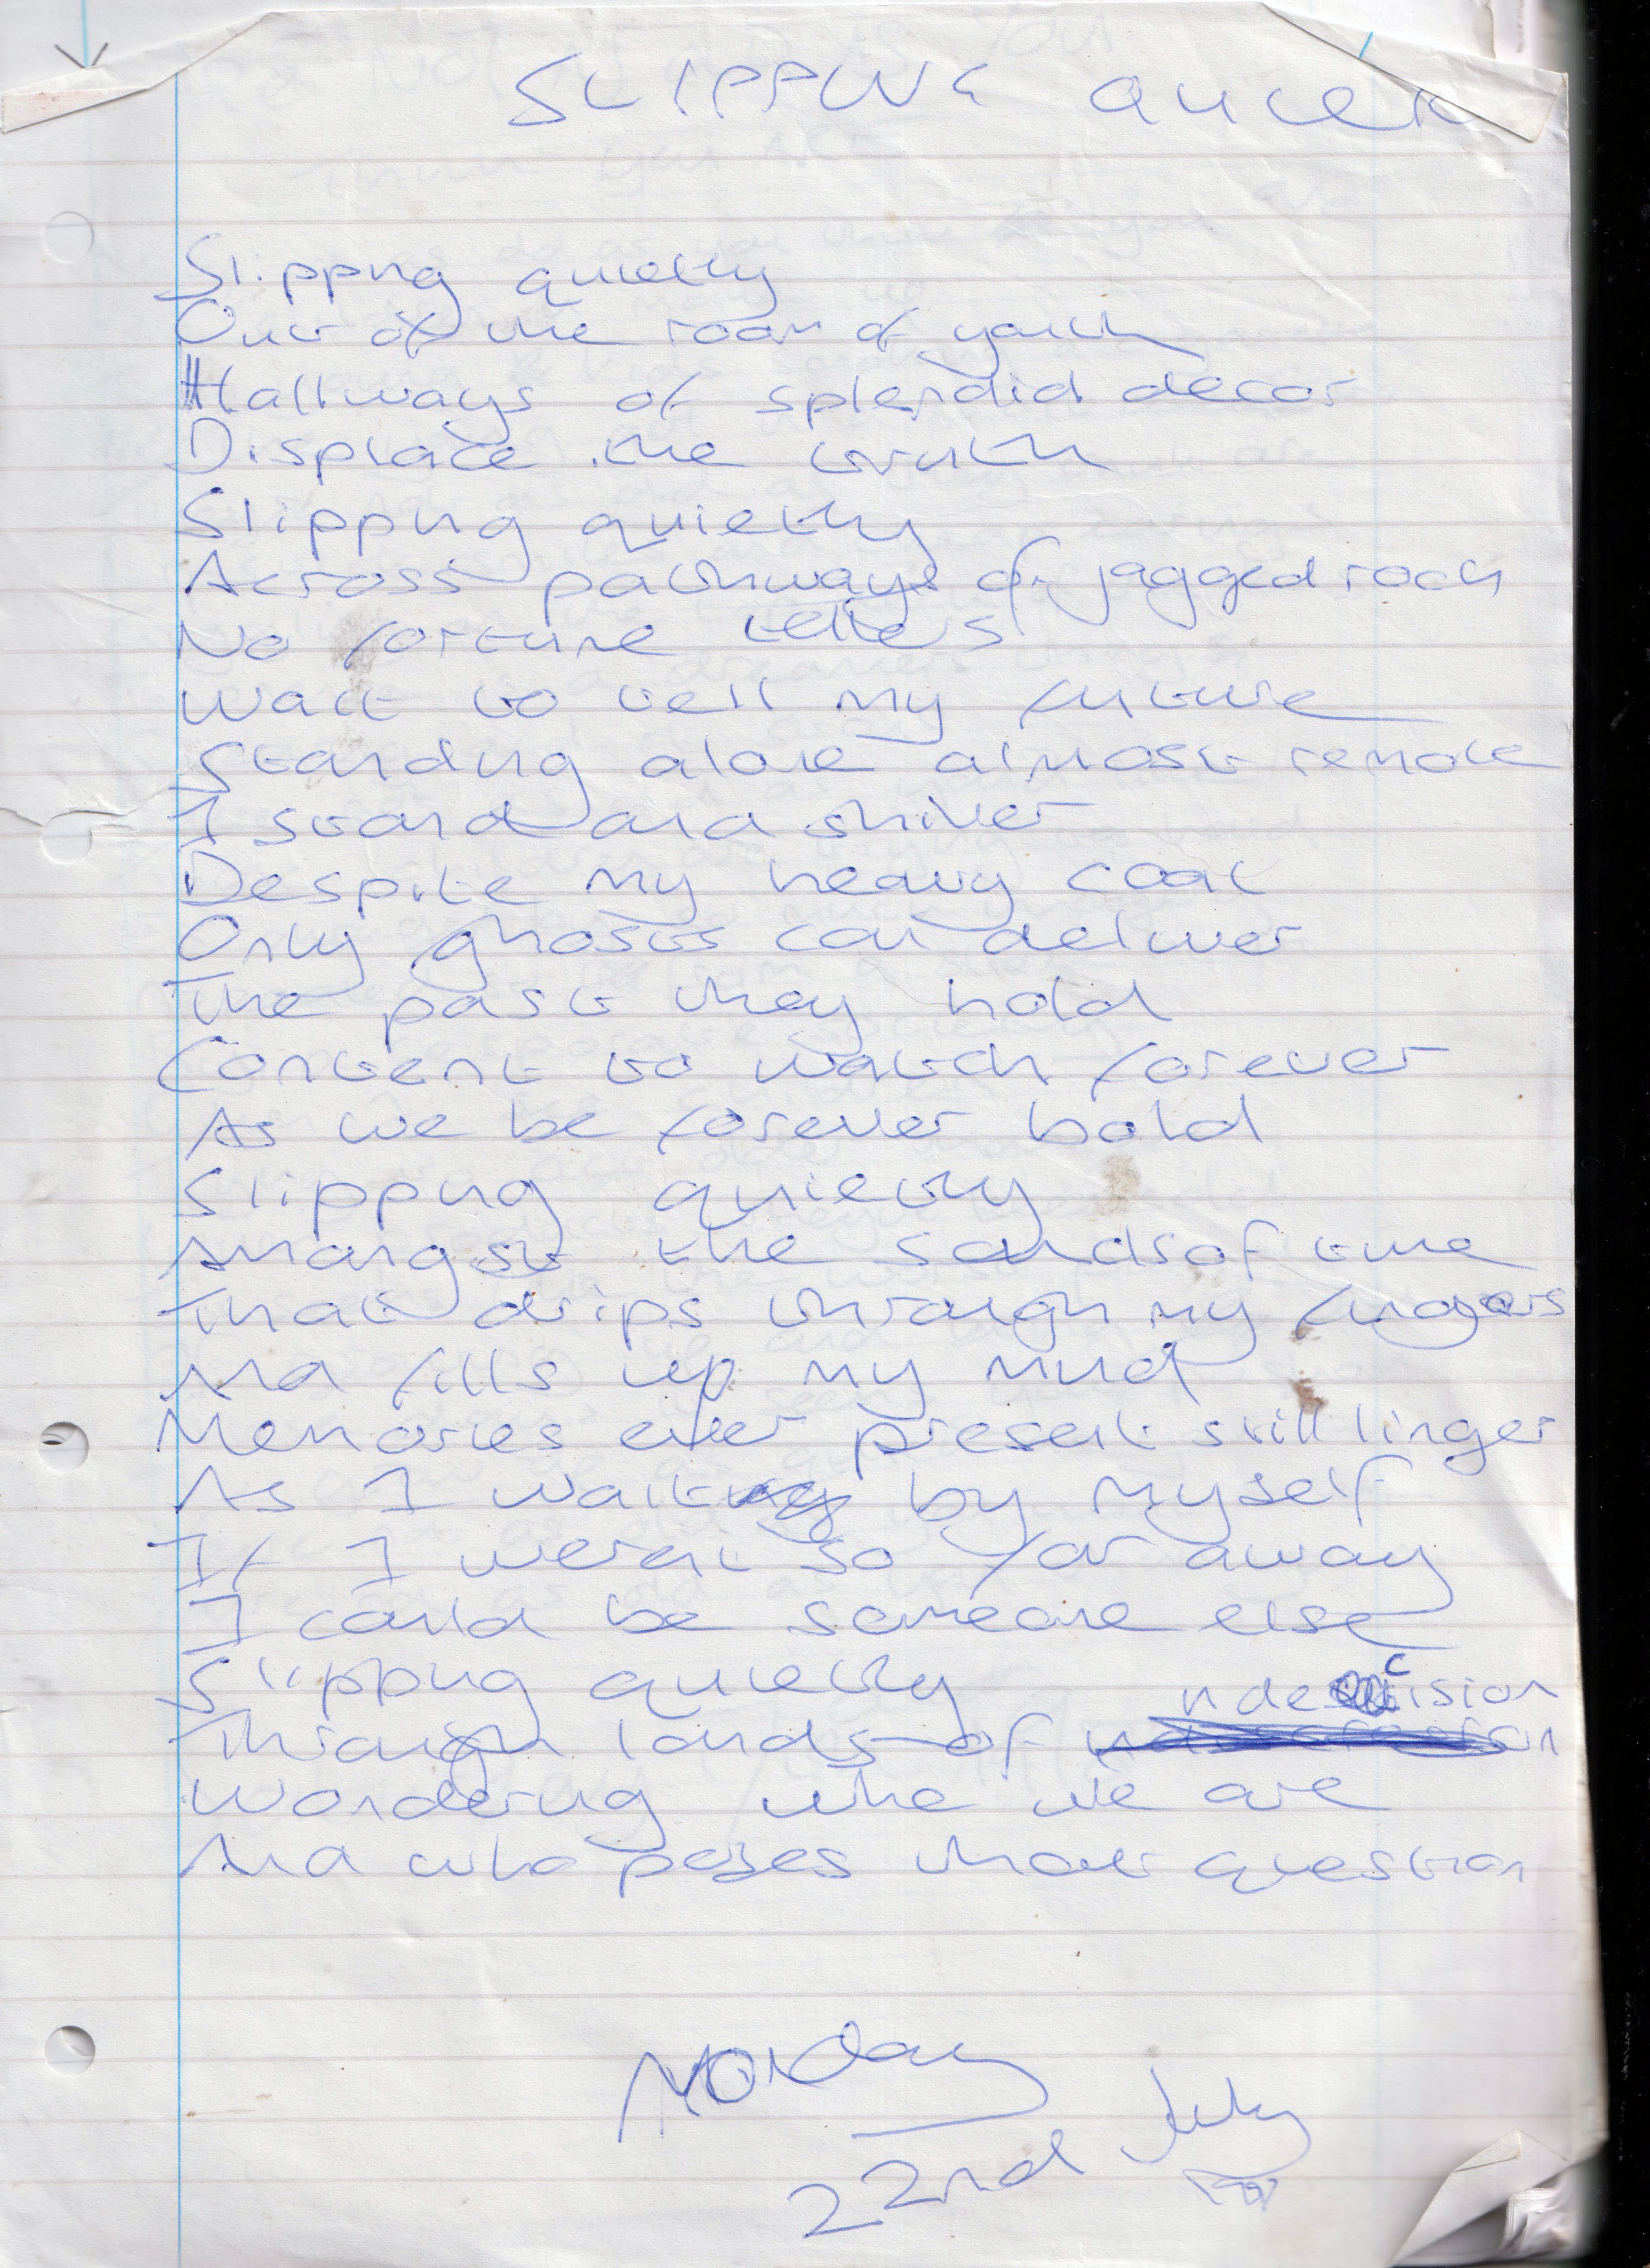 SLIPPING QUIET
Slipping quietly
Out of the room of youth
Hallways of splendid decor
Displace the truth
Slipping quietly
Across pathways of jagged rock
No fortune tellers
Wait to tell my future
Standing alone almost remote
I stand and shiver
Despite my heavy coat
Only ghosts can deliver
The past they hold
Content to watch forever
As we be forever bold
Slipping quietly
Amongst the sands of time
That drips through my fingers
And fills up my mind
Memories ever present still linger
As I wait by myself
If I werent so far away
I could be someone else
Slipping quietly
indecision
Through lands of
Wondering who we are
And who poses that question
Monday
22nd July